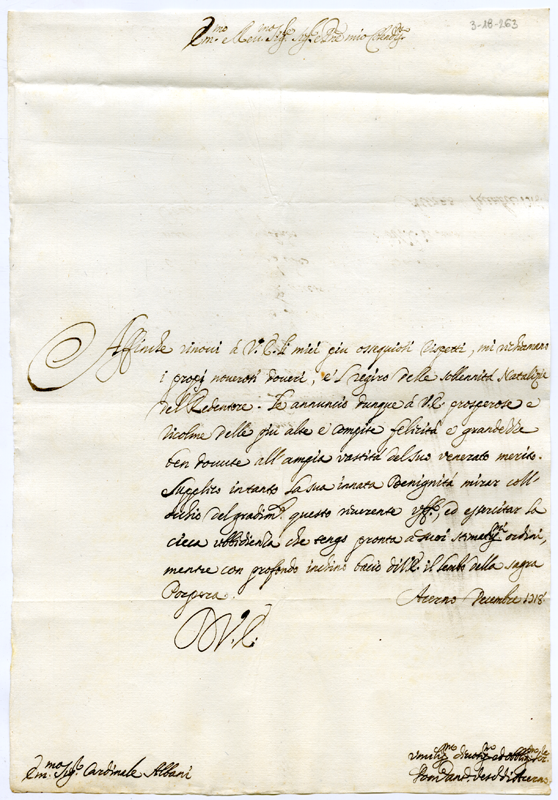 3-18-263
Em.mo Rev.mo Sig.r Sig.r e Pne mio Colend.mo
Affinche rinovi à V.E. li miei piu ossequiosi rispetti, mi richiamano
i propj numerosi doveri, e'l regiro delle sollennità Natalizie
del Redentore. Le annuncio dunque à V.E. prosperose e
ricolme delle più alte e compite felicità e grandezze
ben dovute all'ampia vastità del suo venerato merito.
Supplico intanto la sua innata Benignità mirar coll'
occhio del gradim.to questo riverente uff.o, ed esercitar la
cieca ubbidienza che tengo pronta a suoi stimat.mi ordini,
mentre con profondo inchino bacio di V.E. il lembo della sagra
Porpora. Acerno Decembre 1718
D V.E.
Em.mo Sig.r Cardinale Albani
Umiliss.mo